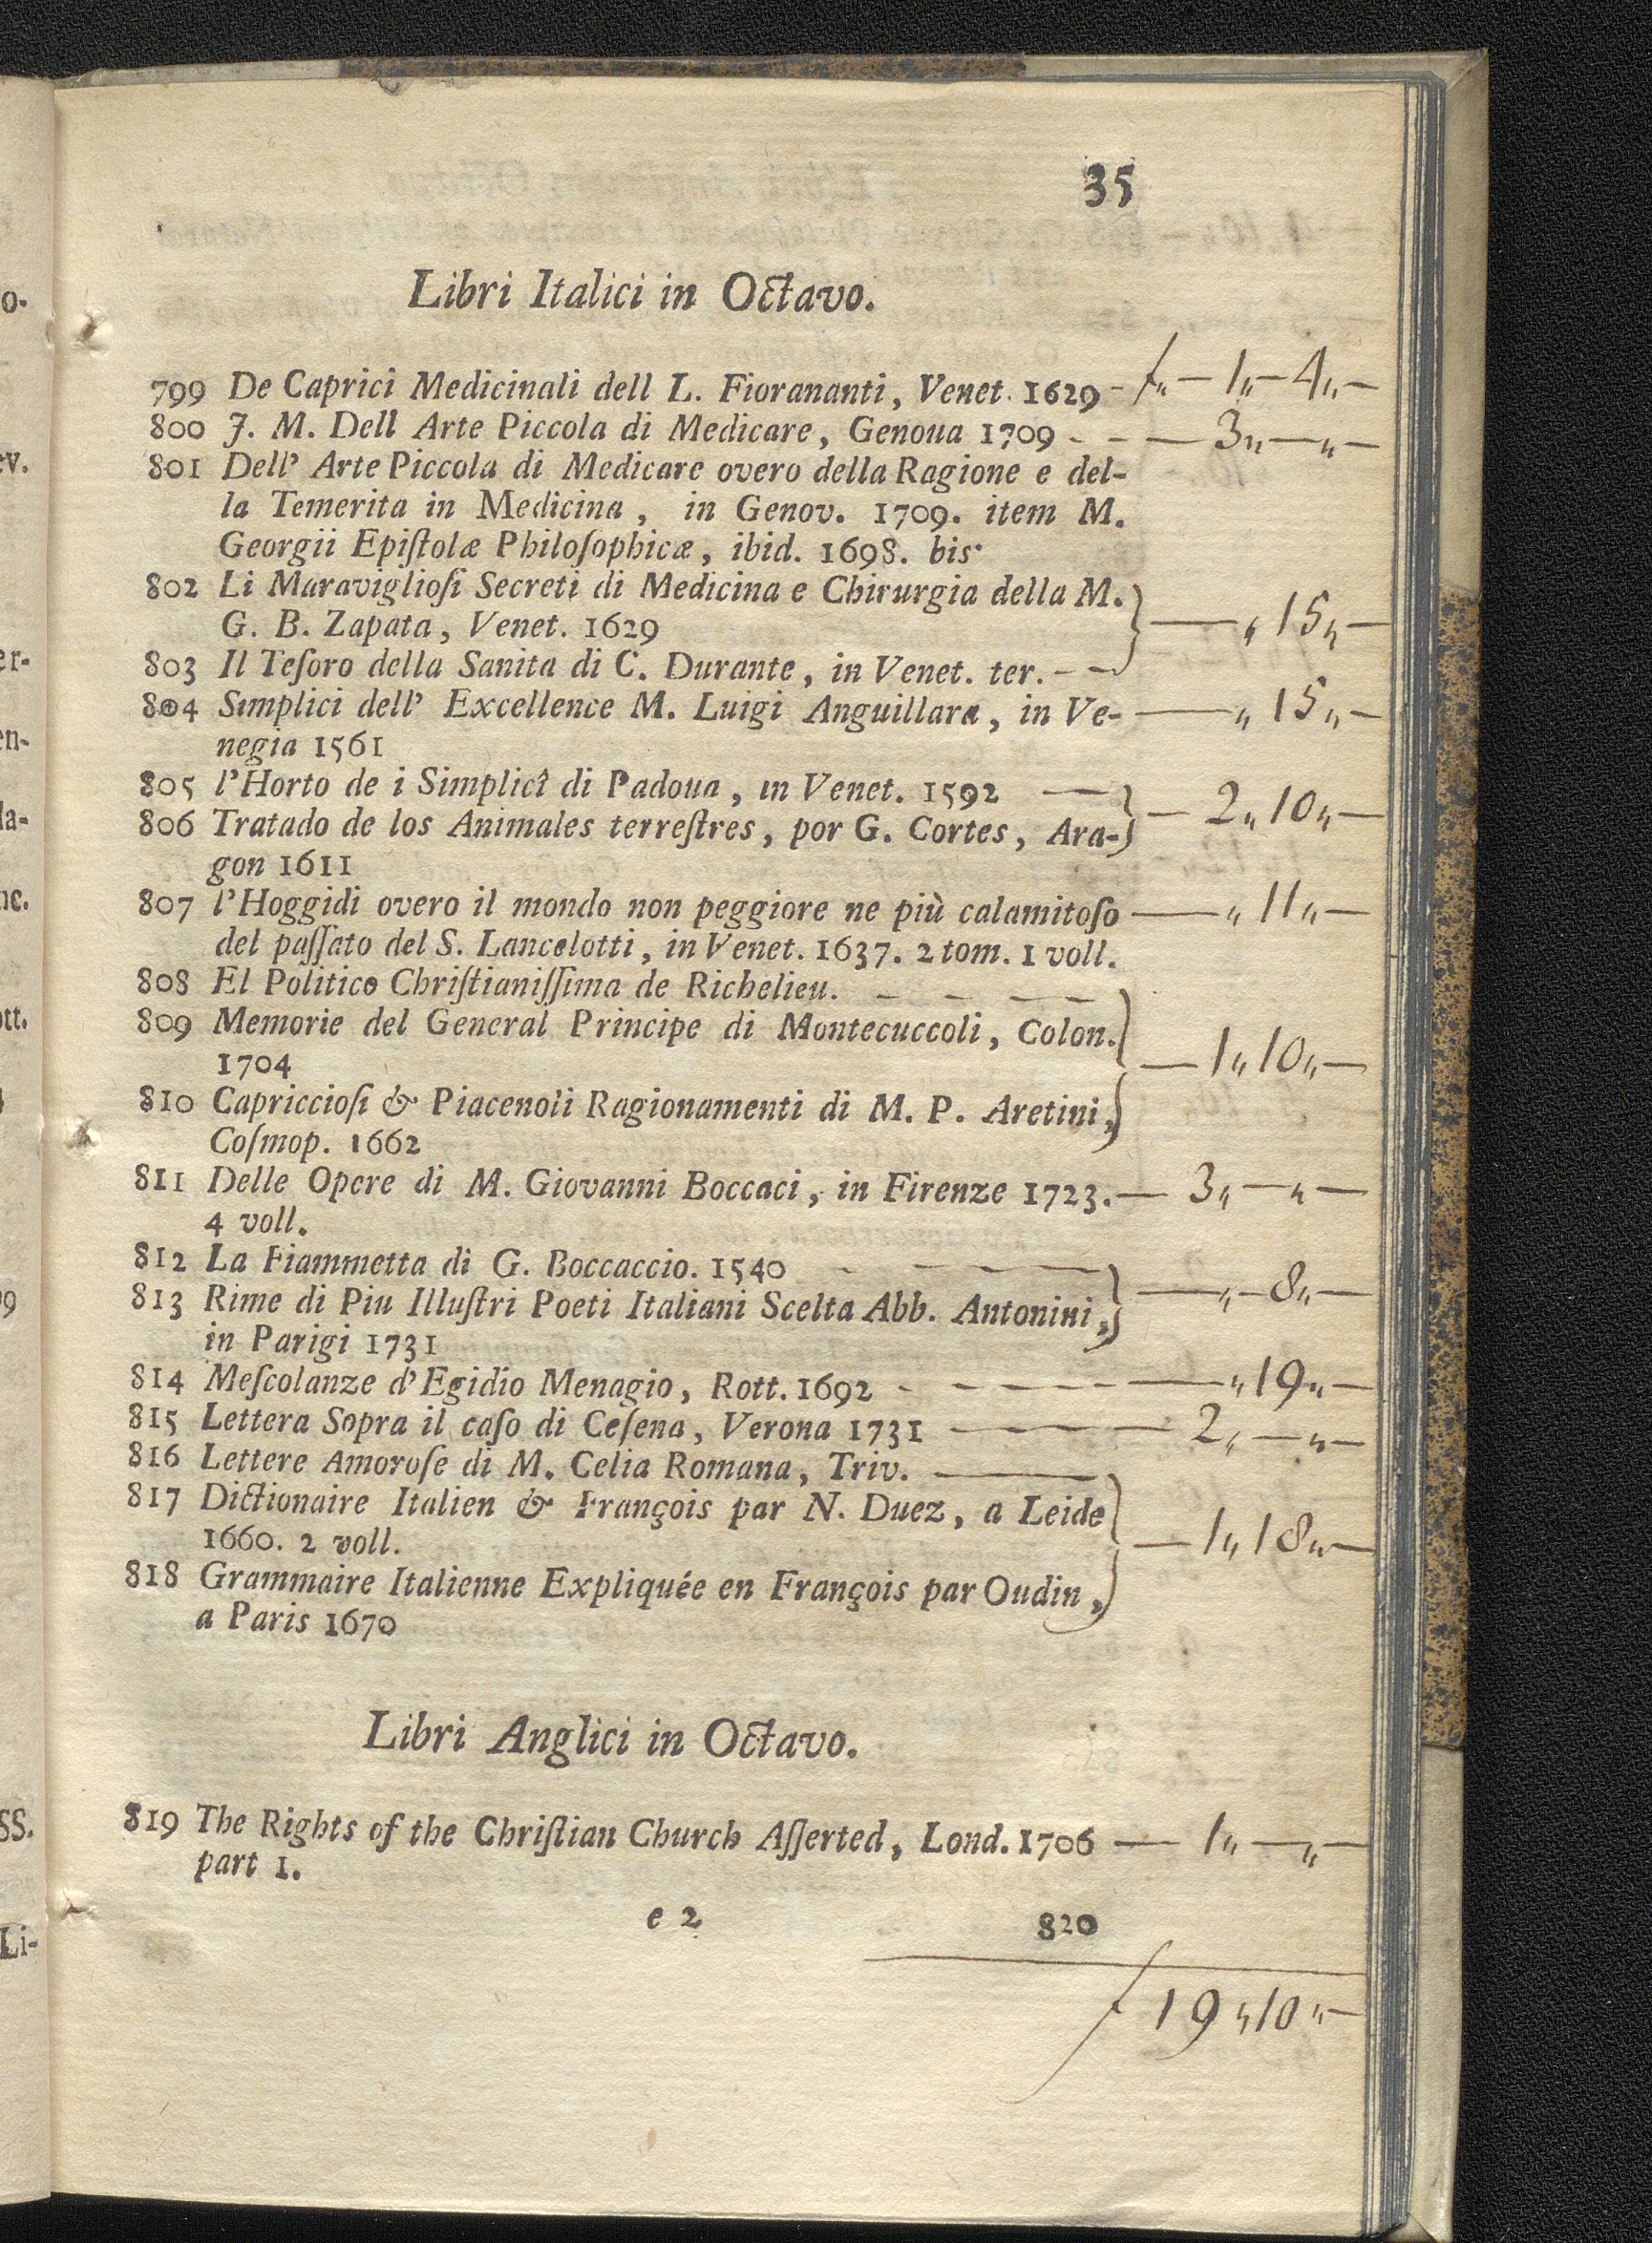 35
Libri Italici in Octavo.
799 De Caprici Medicinali dell L. Fiorananti, Venet. 1629 - f„ — 1„ — 4„ —
800 J. M. Dell Arte Piccola di Medicare, Genoua 1709 - - — 3„ — „ —
801 Dell' Arte Piccola di Medicare overo della Ragione e del-
la Temerita in Medicina, in Genov. 1709. item M.
Georgii Epiſtolæ Philoſophicæ, ibid. 1698. bis·
802 Li Maravigliоſi Secreti di Medicina e Chirurgia della M.
G. B. Zapata, Venet. 1629 } — „ 15„ —
803 Il Teſoro della Sanita di C. Durante, in Venet. ter. - -
804 Simplici dell' Excellence M. Luigi Anguillara, in Ve- — „ 15„ —
negia 1561
805 l'Horto de i Simplicî di Padoua, in Venet. 1592 —
806 Tratado de los Animales terreſtres, por G. Cortes, Ara- } — 2„ 10„ —
gon 1611
807 l'Hoggidi overo il mondo non peggiore ne più calamitoſo — „ 11„ —
del paſſato del S. Lancelotti, in Venet. 1637. 2 tom. 1 voll.
808 El Politico Chriſtianiſſima de Richelieu. — — — —
809 Memorie del General Principe di Montecuccoli, Colon.
1704 } — 1„ 10„ —
810 Capriccioſi & Piacenoli Ragionamenti di M. P. Aretini,
Coſmop. 1662
811 Delle Opere di M. Giovanni Boccaci, in Firenze 1723. — 3„ — „ —
4 voll.
812 La Fiammetta di G. Boccaccio. 1540 - — — —
813 Rime di Piu Illuſtri Poeti Italiani Scelta Abb. Antonini, } — „ — 8„ —
in Parigi 1731
814 Meſcolanze d'Egidio Menagio, Rott. 1692 - - - - — „ 19„ —
815 Lettera Sopra il caſo di Ceſena, Verona 1731 — — — 2„ — „ —
816 Lettere Amoroſe di M. Celia Romana, Triv. —
817 Dictionaire Italien & François par N. Duez, a Leide
1660. 2 voll. } — 1„ 18„ —
818 Grammaire Italienne Expliquée en François par Oudin,
a Paris 1670
Libri Anglici in Octavo.
819 The Rights of the Chriſtian Church Aſſerted, Lond. 1706 — 1„ — „ —
part 1.
e 2 820
f 19„ 10„ —